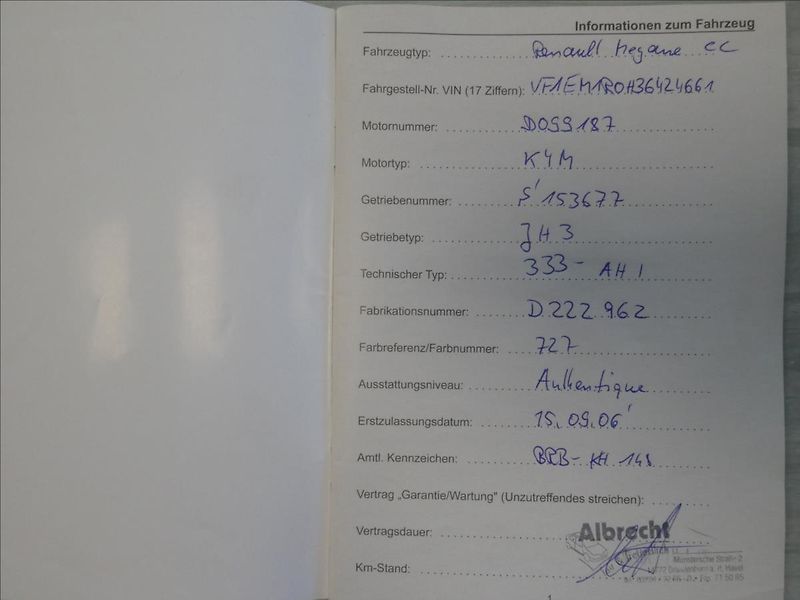 Informationen zum Fahrzeug
Fahrzeugtyp: Renault Megane CC
Fahrgestell-Nr. VIN (17 Ziffern): VF1EM1R0H36424661
Motornummer: D099187
Motortyp: K4M
Getriebenummer: S' 153677
Getriebetyp: JH3
Technischer Typ: 333- AH1
Fabrikationsnummer: D222962
Farbreferenz/Farbnummer: 727
Ausstattungsniveau: Authentique
Erstzulassungsdatum: 15.09.06
Amtl. Kennzeichen: BRB-KH 148
Vertrag „Garantie/Wartung" (Unzutreffendes streichen):
Vertragsdauer:
Albrecht
Km-Stand:
1